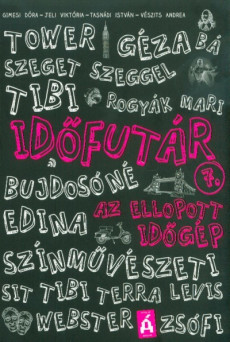 GIMESI DÓRA – JELI VIKTÓRIA – TASNÁDI ISTVÁN – VÉSZITS ANDREA
TOWER GÉZA BÁ
SZEGET SZEGGEL
TIBI ROGYÁK MARI
IDŐFUTÁR
A 7.
BUJDOSÓNÉ
EDINA AZ ELLOPOTT
IDŐGÉP
SZÍNMŰVÉSZETI
SIT TIBI TERRA LEVIS
WEBSTER Á ZSÓFI